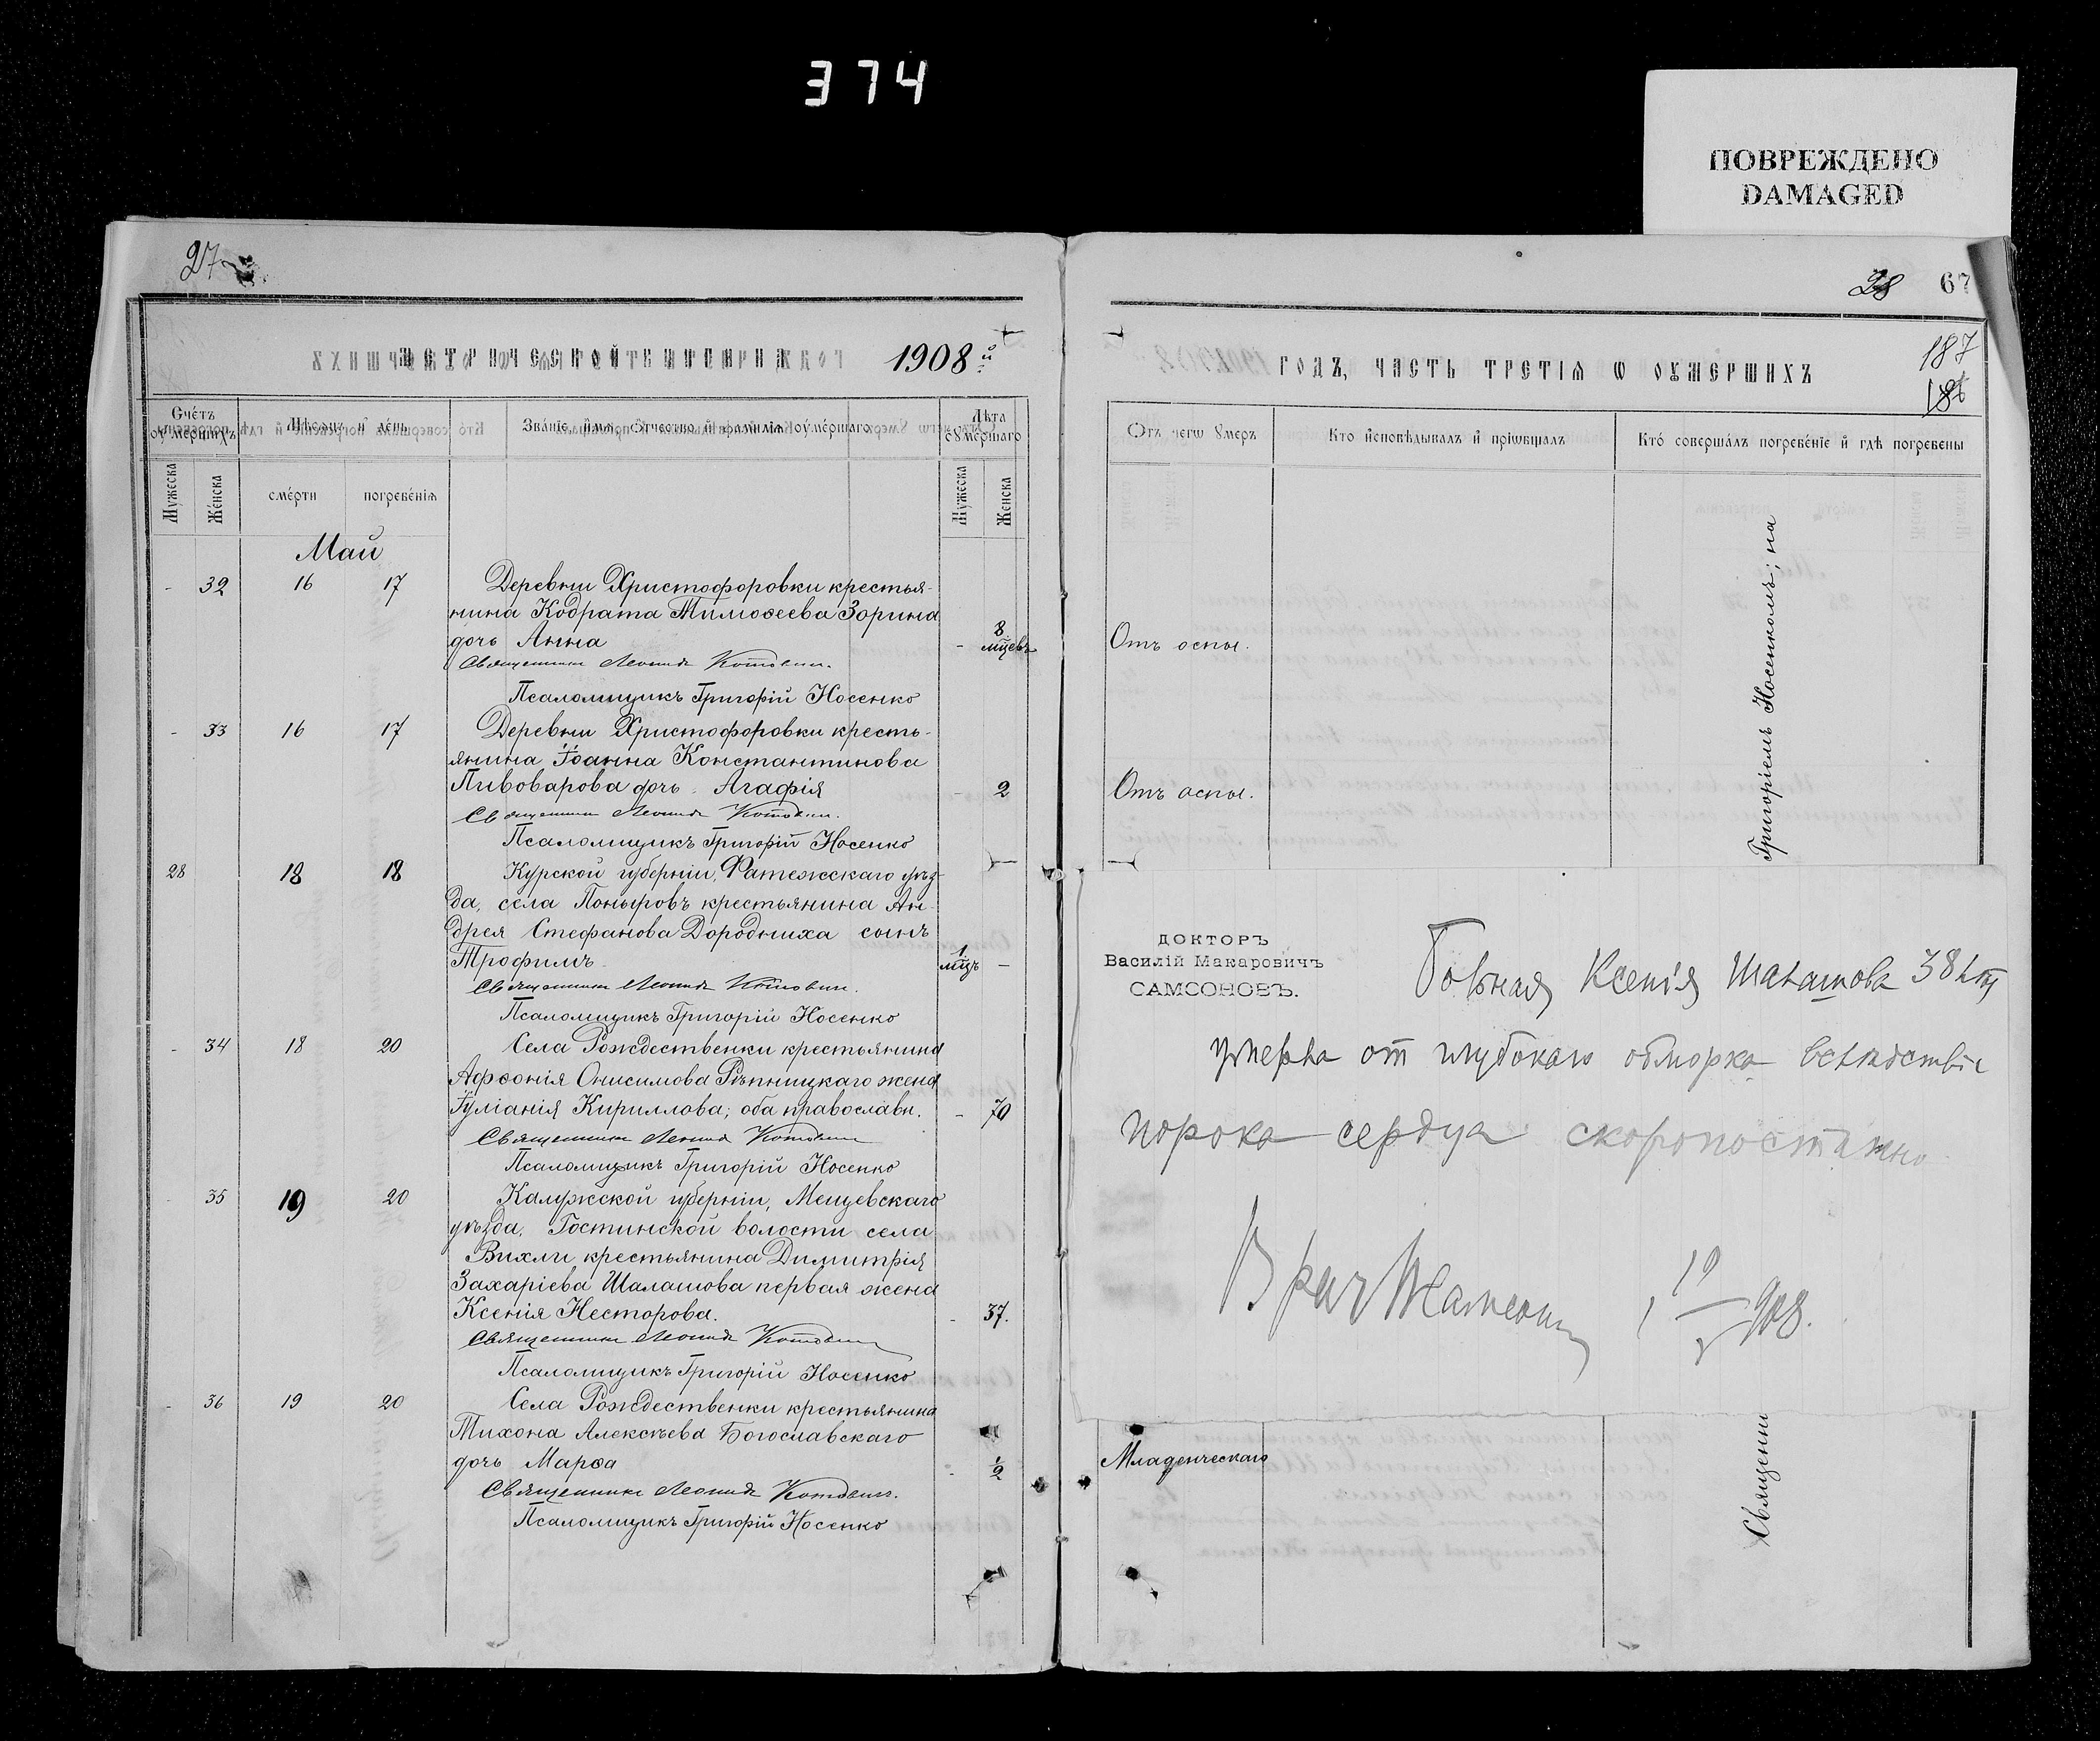 374
ПОВРЕЖДЕНО
DAMAGED
27
1908й
Счетъ оумершихъ
Мѣсяцъ и день
Званіе, имя, отчество и фамилія оумершаго
Лѣта оумершаго
Мужеска
Женска
смерти
погребенія
Мужеска
Женска
Май
- 32 16 17 Деревни Христофоровки крестья-
нина Кодрата Тимоѳеева Зорина
дочь Анна - 8 мцевъ
Священникъ Леонидъ Котович
Псаломщикъ Григорій Носенко
- 33 16 17 Деревни Христофоровки кресть-
янина Іоанна Константинова
Пивоварова дочь Агафія - 2
Священникъ Леонидъ Котович
Псаломщикъ Григорій Носенко
28 18 18 Курской губерніи, Фатежскаго уѣз-
да, села Поныровъ крестьянина Ан-
дрея Стефанова Дородныха сынъ
Трофимъ 1 мцъ -
Священникъ Леонидъ Котович
Псаломщикъ Григорій Носенко
- 34 18 20 Села Рождественки крестьянина
Афѳонія Онисимова Рѣпницкаго жена
Іуліанія Кириллова; оба православн. - 70
Священникъ Леонидъ Котович
Псаломщикъ Григорій Носенко
35 19 20 Калужской губерніи, Мещевскаго
уѣзда, Гостинской волости села
Вихли крестьянина Димитрія
Захаріева Шалашова первая жена
Ксенія Несторова. - 37.
Священникъ Леонидъ Котович
Псаломщикъ Григорій Носенко
- 36 19 20 Села Рождественки крестьянина
Тихона Алексѣева Богославскаго
дочь Марѳа - 1/2
Священникъ Леонидъ Котович
Псаломщикъ Григорій Носенко
28 67
187
186
годъ, часть третія ѡ оумершихъ
Отъ чегѡ умеръ
Кто исповѣдывалъ и пріѡбщалъ
Кто совершалъ погребеніе и гдѣ погребены
Отъ оспы.
Отъ оспы.
Григоріемъ Носенкомъ; на
ДОКТОРЪ
Василій Макаровичъ
САМСОНОВЪ.
Больная Ксенія Шалашова 38 лѣт
умерла от глубокаго обморка вслѣдствіе
порока сердца скоропостижно
Врач 19 908.
Младенческаго
Священни